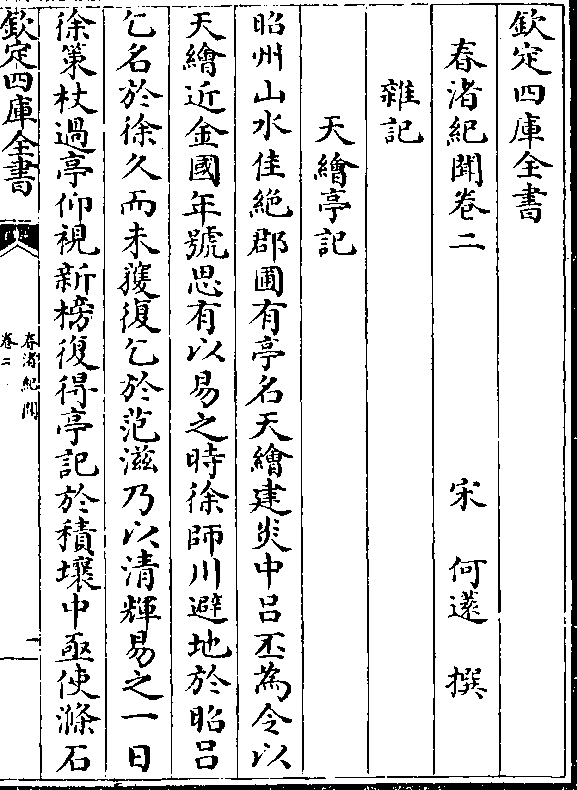 欽定四庫全書
春渚紀聞卷二
宋 何薳 撰
雜記
天繪亭記
昭州山水佳絶郡圃有亭名天繪建炎中吕丕為令以
天繪近金國年號思有以易之時徐師川避地於昭吕
乞名於徐久而未獲復乞於范滋乃以清輝易之一日
徐策杖過亭仰視新榜復得亭記於積壤中亟使滌石
欽定四庫全書
春渚紀聞
卷二
一